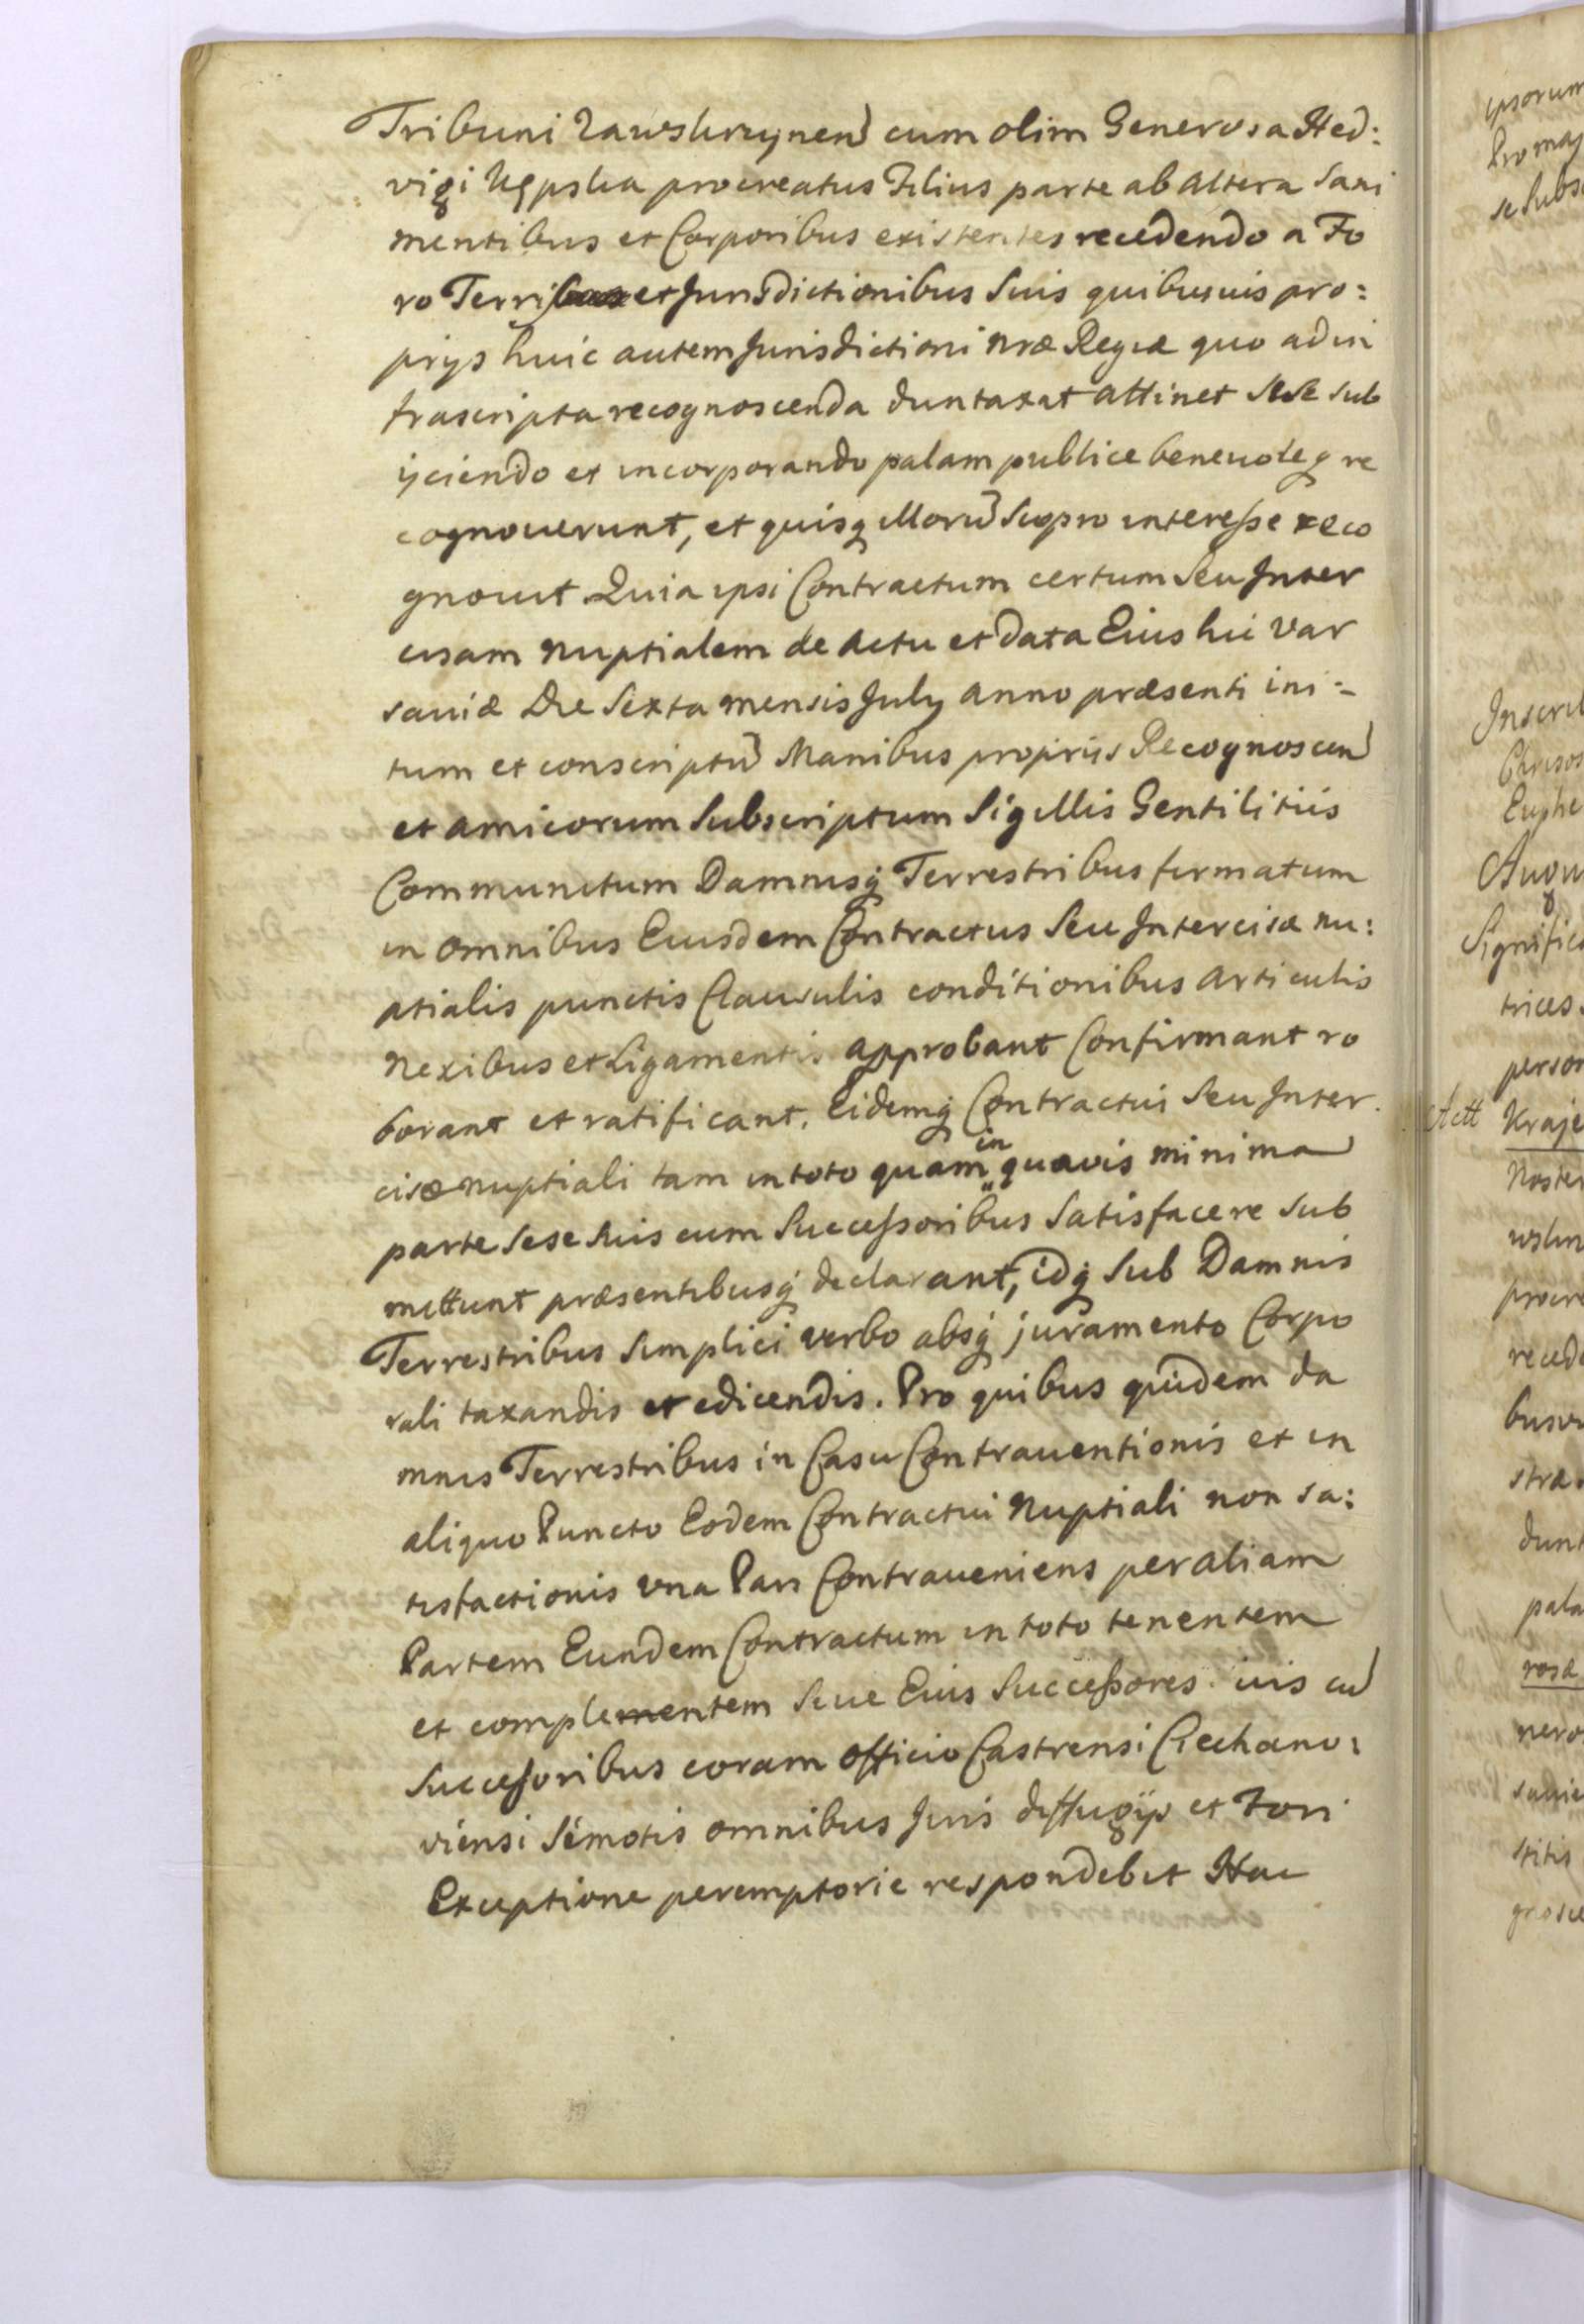 Tribuni Zawskrzynen cum olim Generosa Hed:
vigi Kępska procreatus Filius parte ab altera Sani
mentibus et Corporibus existentes recedendo a Fo
ro Terri et Jurisdictionibus Suis quibusuis pro:
prijs huic autem Jurisdictioni nræ Regiæ quo ad in
frascripta recognoscenda duntaxat attinet sese sub
ijciendo et incorporando palam publice beneuoleq re
cognouerunt, et quisq Illorũ suo pro interesse reco
gnouit Quia ipsi Contractum certum seu Inter
cisam nuptialem de actu et data Eius hic Var
sauiæ Die Sexta mensis July anno præsenti ini:
tum et conscriptũ Manibus propriis Recognoscen
et amicorum Subscriptum Sigillis Gentilitiis
Communitum Damnisq Terrestribus firmatum
in omnibus Eiusdem Contractus Seu Intercisæ nu:
ptialis punctis Clausulis conditionibus articulis
Nexibus et Ligamentis approbant Confirmant ro
borant et ratificant. Eidemq Contractui Seu Inter
cisæ nuptiali tam in toto quam in quavis minima
parte sese suis cum Successoribus Satisfacere sub
mittunt præsentibusq declarant, idq sub Damnis
Terrestribus simplici verbo absq juramento Corpo
rali taxandis et edicendis. Pro quibus quidem da
mnis Terrestribus in Casu Contrauentionis et in
aliquo Puncto Eodem Contractui Nuptiali non sa:
tisfactionis vna Pars Contraueniens per aliam
Partem Eundem Contractum in toto tenentem
et complementem Siue Eius Successores
Successoribus coram officio Castrensi Ciechano:
viensi Semotis omnibus Juris diffugijs et Fori
Exceptione peremptorie respondebit Hac
ipsorum
Pro maj
se Subs
Inscri
Chrisos
Euphe
Augu
Signific
trices
person
Actt Kraje
Noster
wskr
procre
reced
busui
stræ
dunt
pala
rosæ
nero
sauie
stitis